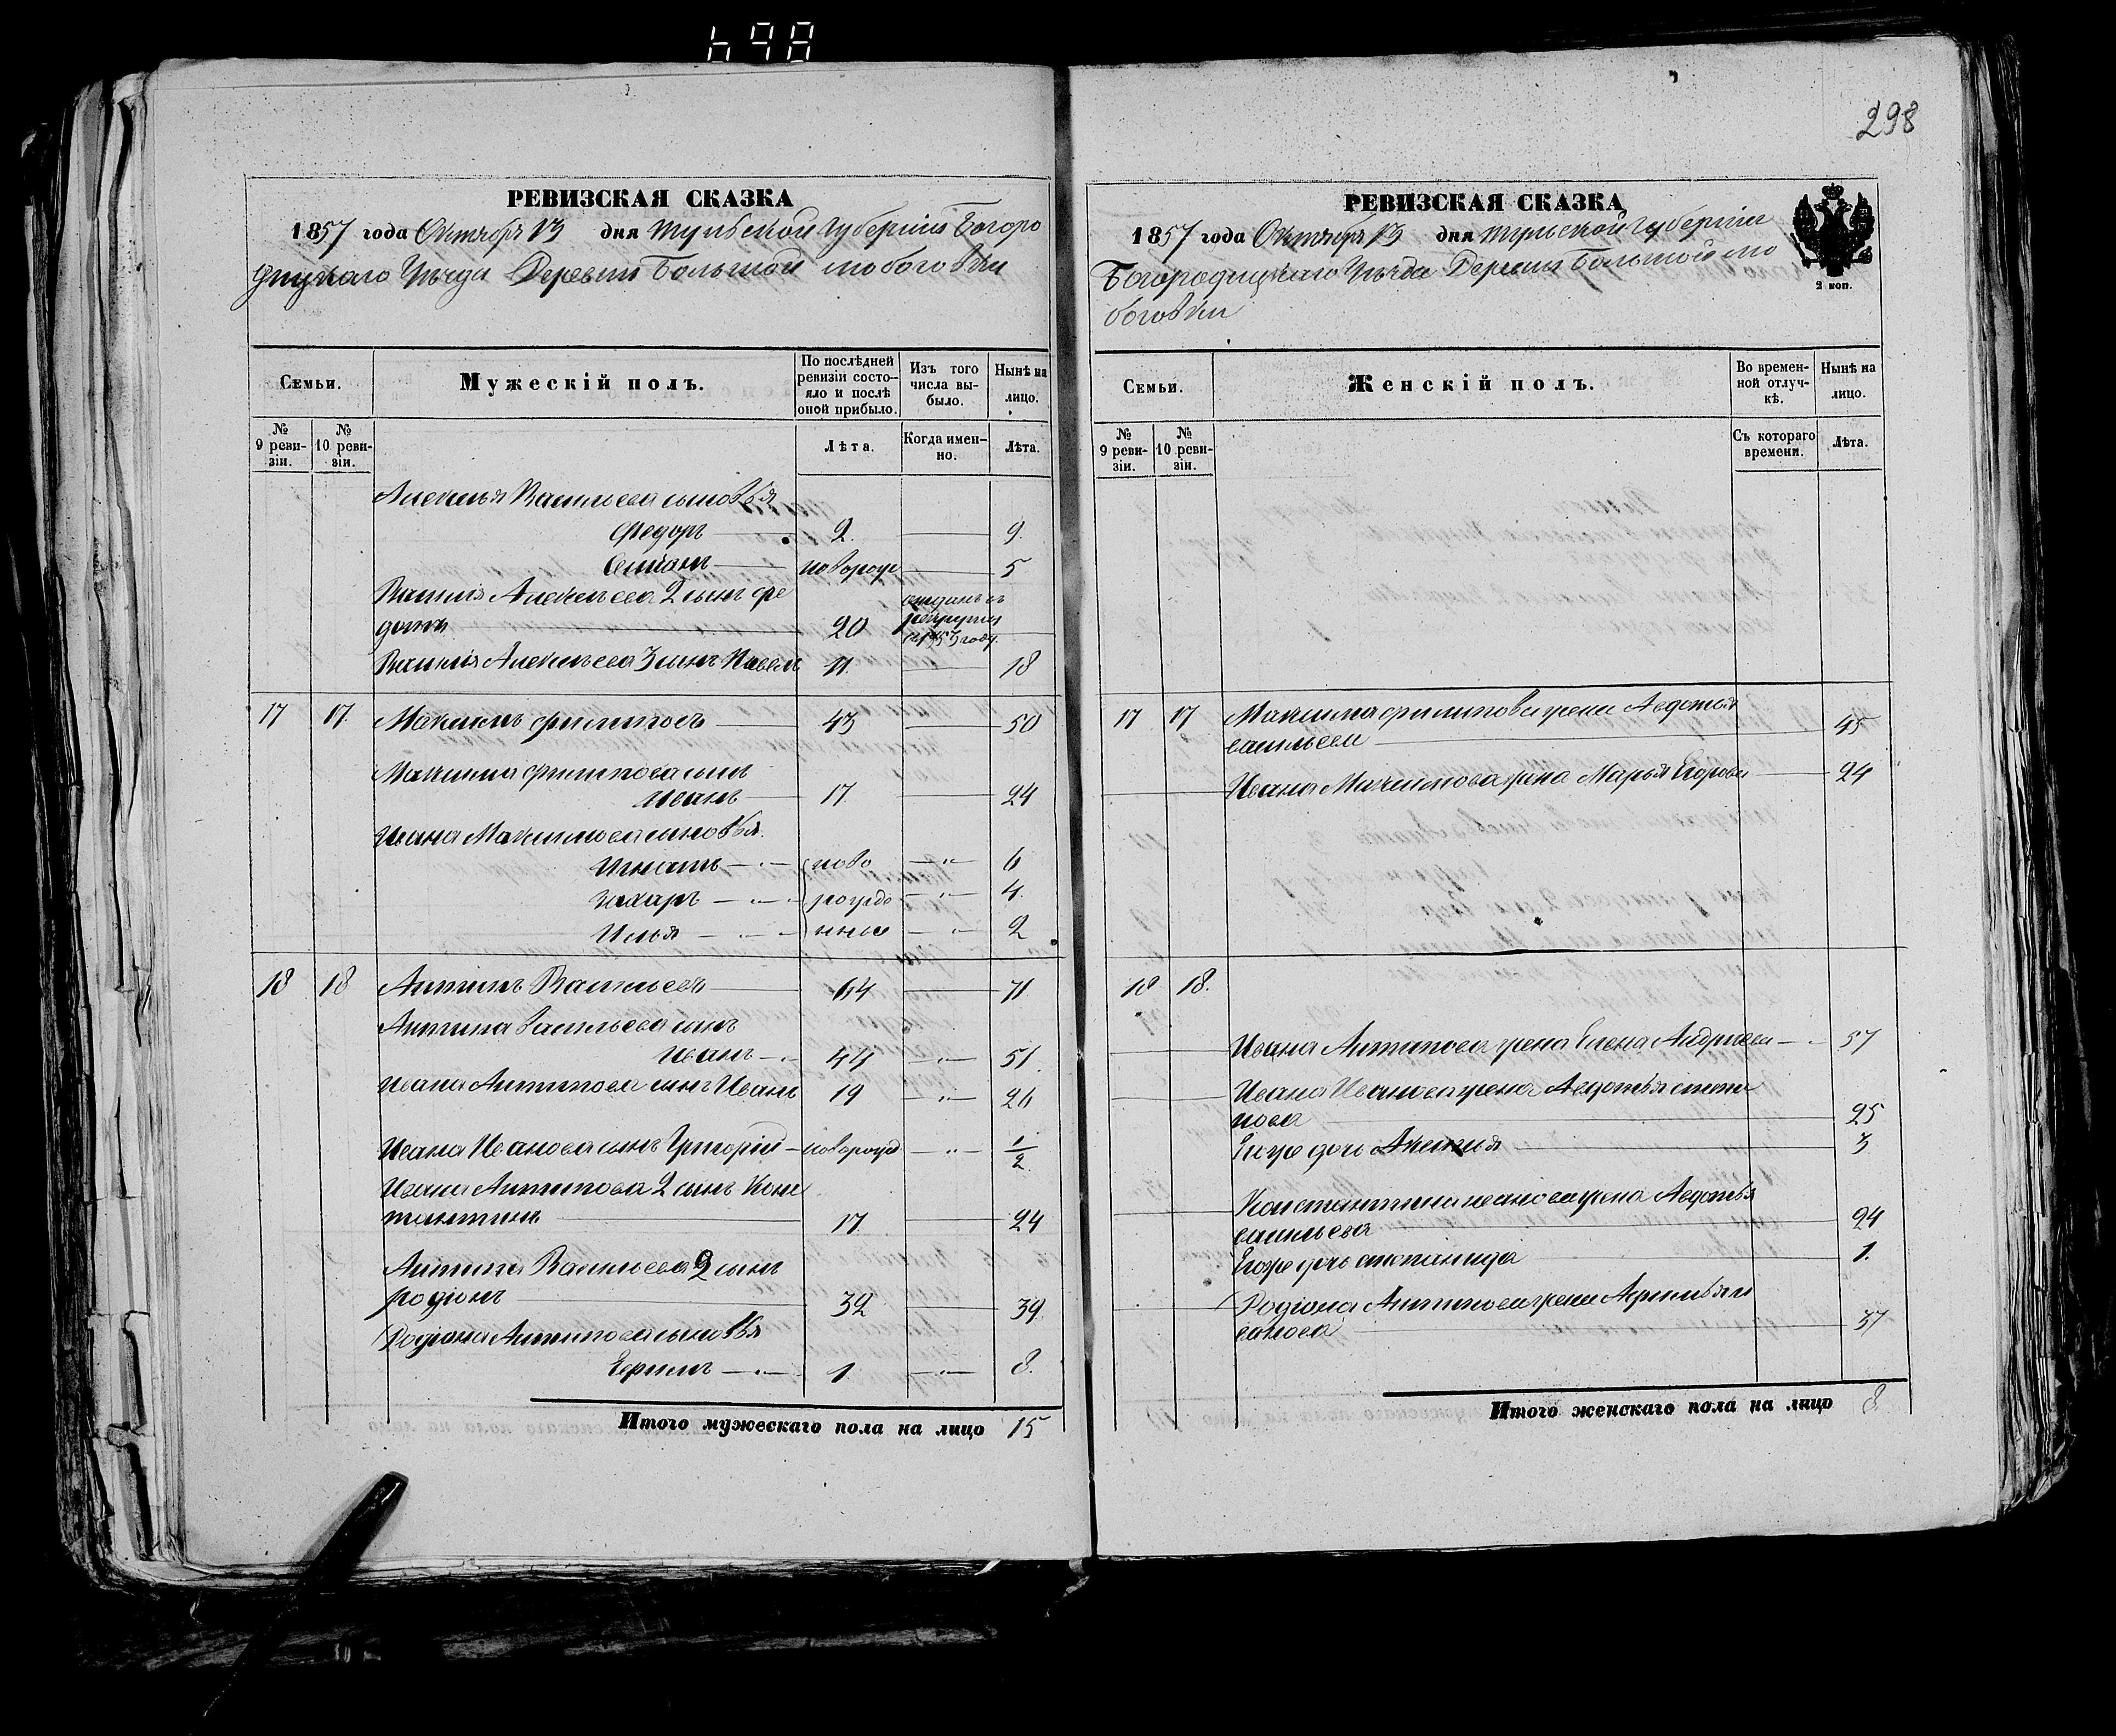 298
РЕВИЗСКАЯ СКАЗКА
1857 года Октября 13 дня Тульской губерніи Богоро
дицкаго Уѣзда Деревни Большой любоговки
Семьи.
Мужескій полъ.
По послѣдней
ревизіи состо-
яло и послѣ
оной прибыло.
Изъ того
числа вы-
было.
Нынѣ на
лицо.
№
9 реви-
зіи.
№
10 реви-
зіи.
Лѣта.
Когда имен-
но.
Лѣта.
Алексѣя Васильева сыновья
Федоръ 2 9
Степанъ новорожд 5
Василія Алексѣева 2 сынъ Фе
дотъ 20 отданъ въ
рекруты
в 1853 году
Василія Алексѣева 3 сынъ Павелъ 11 18
17 17 Максимъ Филиповъ 43 50
Максима Филипова сынъ
Иванъ 17 24
Ивана Максимова сыновья
Игнатъ ново 6
Захаръ рожде 4
Илья нные 2
18 18 Антипъ Васильевъ 64 71
Антипа Васильева сынъ
Иванъ 44 51
Ивана Антипова сынъ Иванъ 19 26
Ивана Иванова сынъ Григорій новорожд 1/2
Ивана Антипова 2 сынъ Конс
тантинъ 17 24
Антипа Васильева 2 сынъ
Родіонъ 32 39
Родіона Антипова сыновья
Ефимъ 1 8
Итого мужескаго пола на лицо 15
РЕВИЗСКАЯ СКАЗКА
1857 года Октября 13 дня Тульской губерніи
Богородицкаго Уѣзда Деревни Большой лю
боговки
2 коп.
Семьи.
Женскій полъ.
Во времен-
ной отлуч-
кѣ.
Нынѣ на
лицо.
№
9 реви-
зіи.
№
10 реви-
зіи.
Съ котораго
времени.
Лѣта.
17 17 Максима Филипова жена Авдотья
васильева 45
Ивана Максимова жена Марья Егорова 24
18 18.
Ивана Антипова жена Елена Андреева 57
Ивана Иванова жена Авдотья
25
Егоже дочь Акелина 3
Константина иванова жена Авдотья
васильева 24
Егоже дочь степанида 1.
Родіона Антипова жена Афимья и
ванова 37
Итого женскаго пола на лицо 8